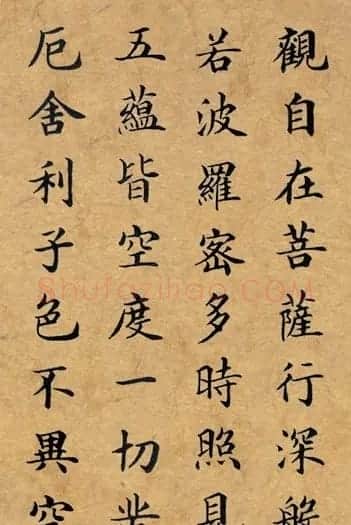 觀自在菩薩行深般
若波羅密多時照見
五蘊皆空度一切苦
厄舍利子色不異空